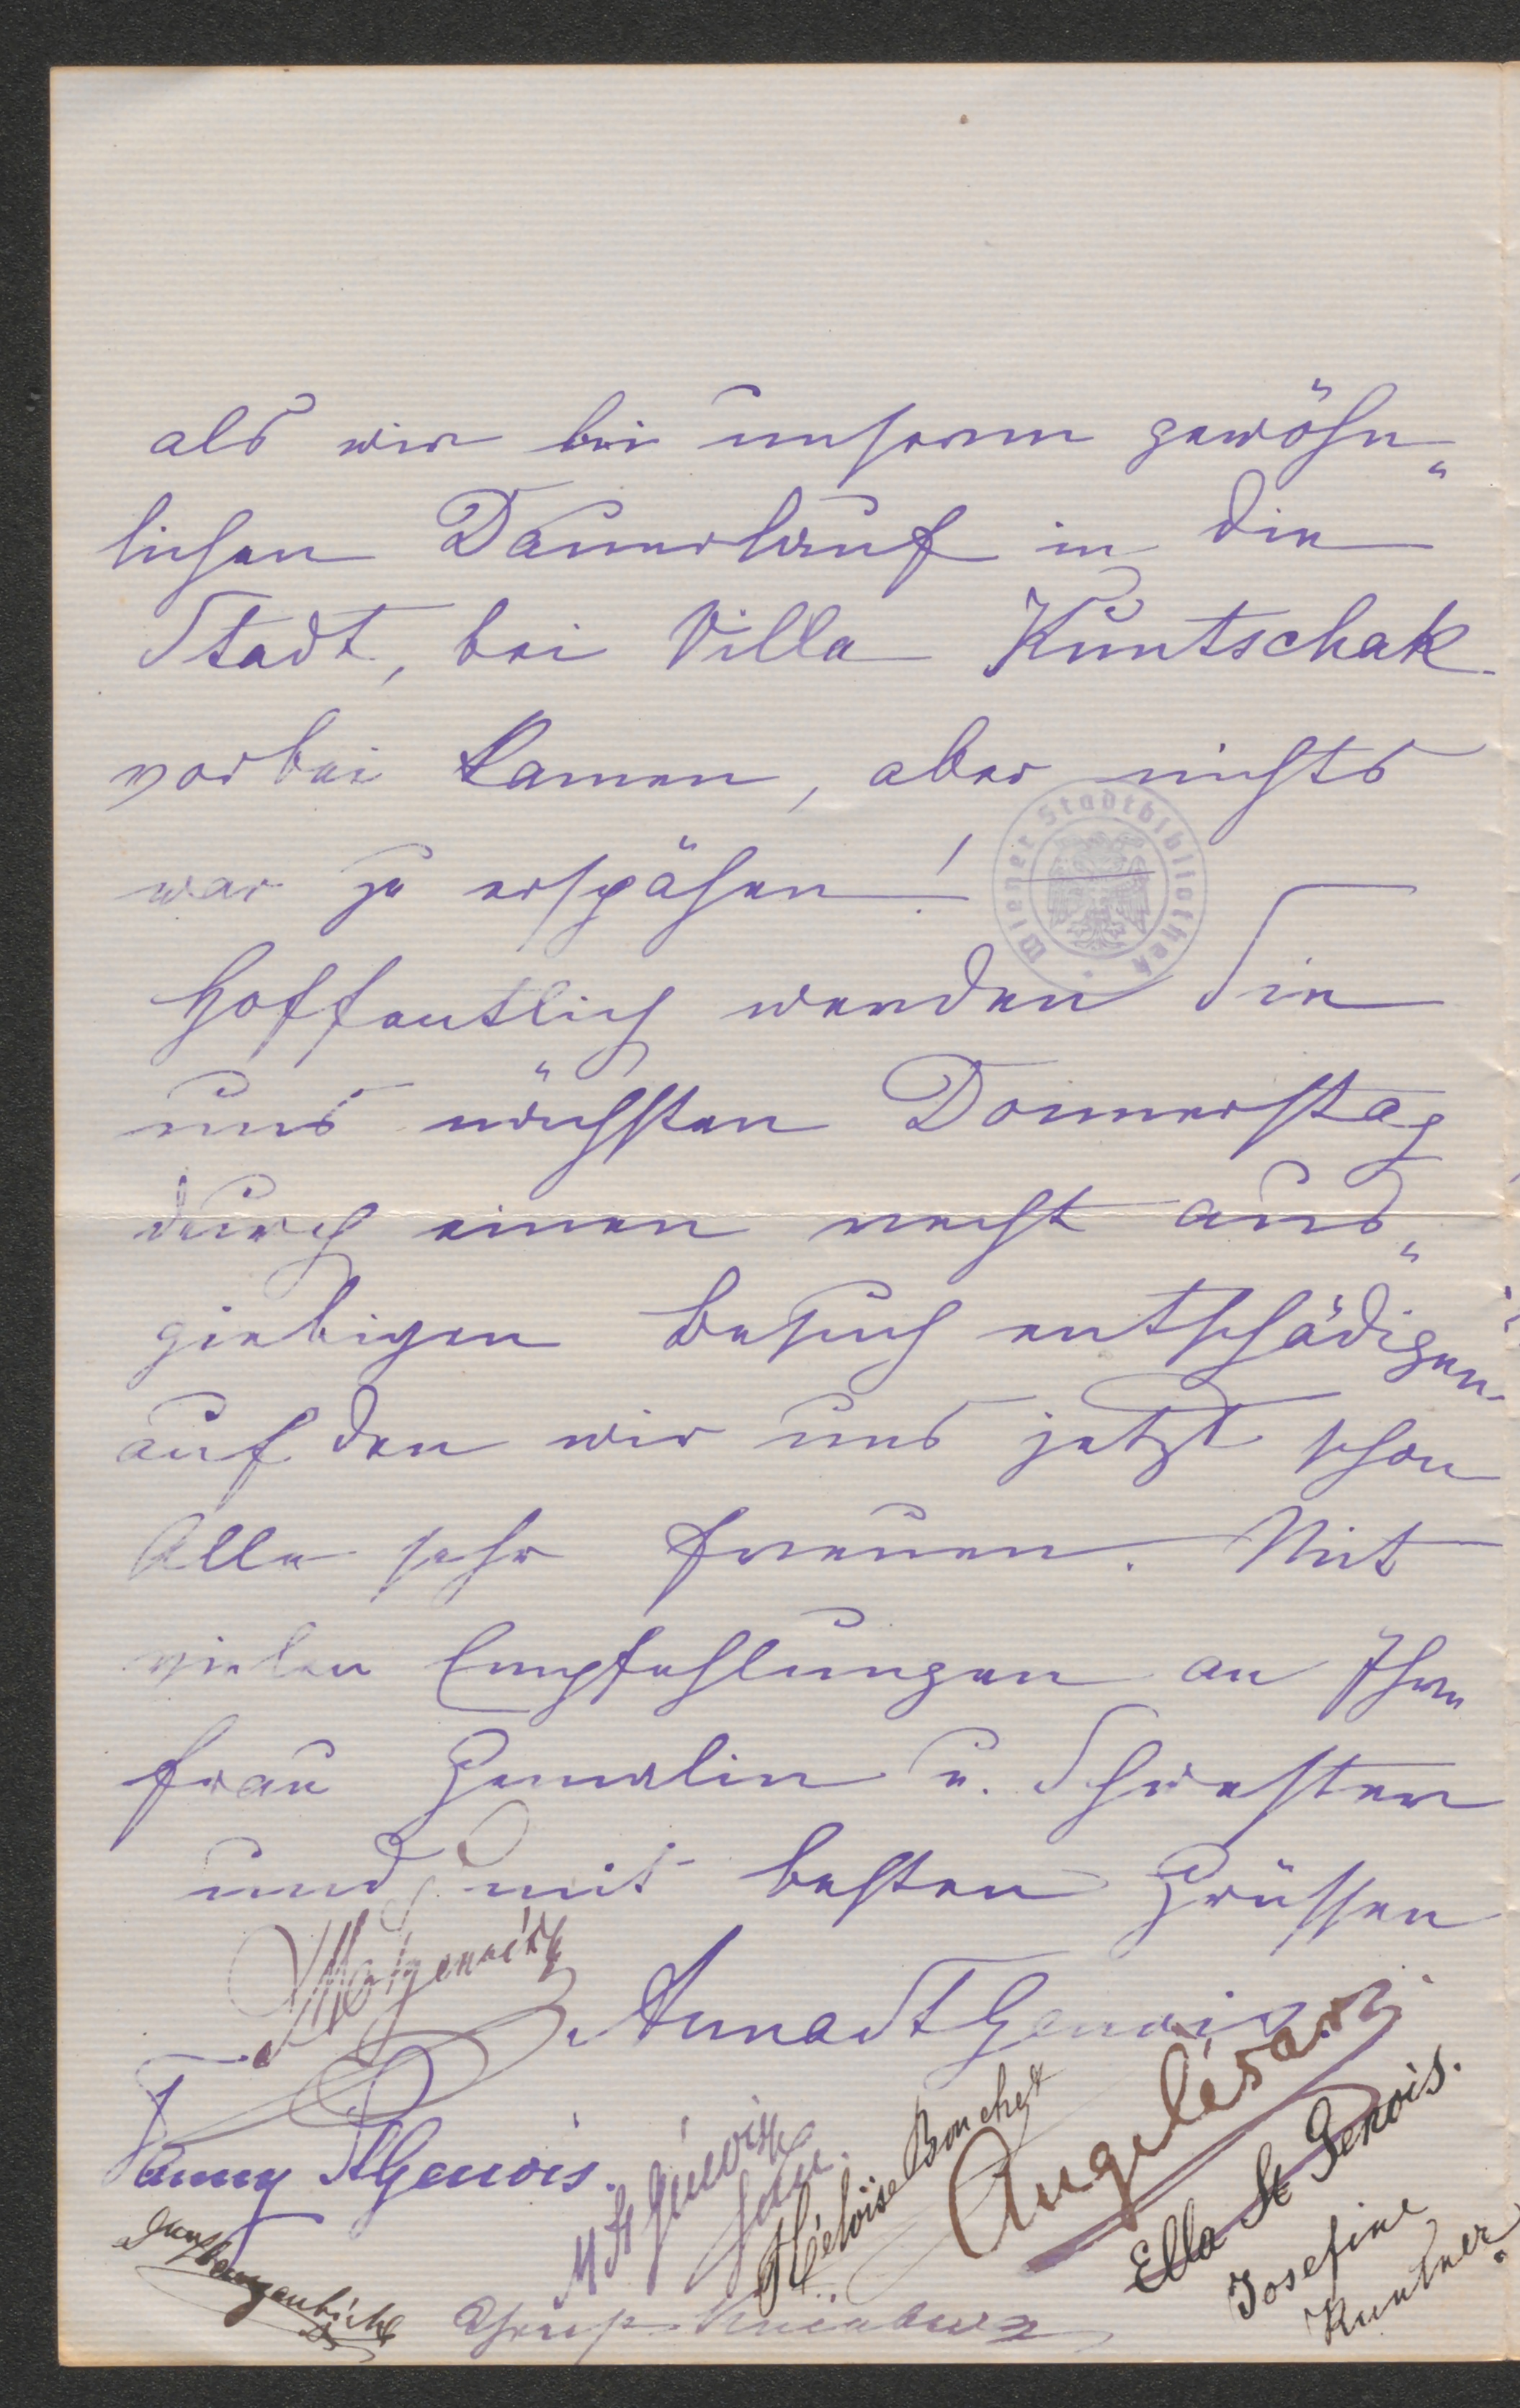 als wir bei unserem gewöhn„
lichen Dauerlauf in die
Stadt, bei Villa Kuntschak
vorbei kamen, aber nichts
war zu erspähen!
Wiener Stadtbibliothek
Hoffentlich werden Sie
uns nächsten Donnerstag
durch einen recht aus„
giebigen Besuch entschädigen
auf den wir uns jetzt schon
Alle sehr freuen. Mit
vielen Empfehlungen an Ihre
Frau Gemalin u. Schwester
und mit besten Grüssen
Anna St Genois.
Fanny StGenois.
M St Genois
Héloïse Bouchet
Ella St Genois.
Josefine
Kuntner